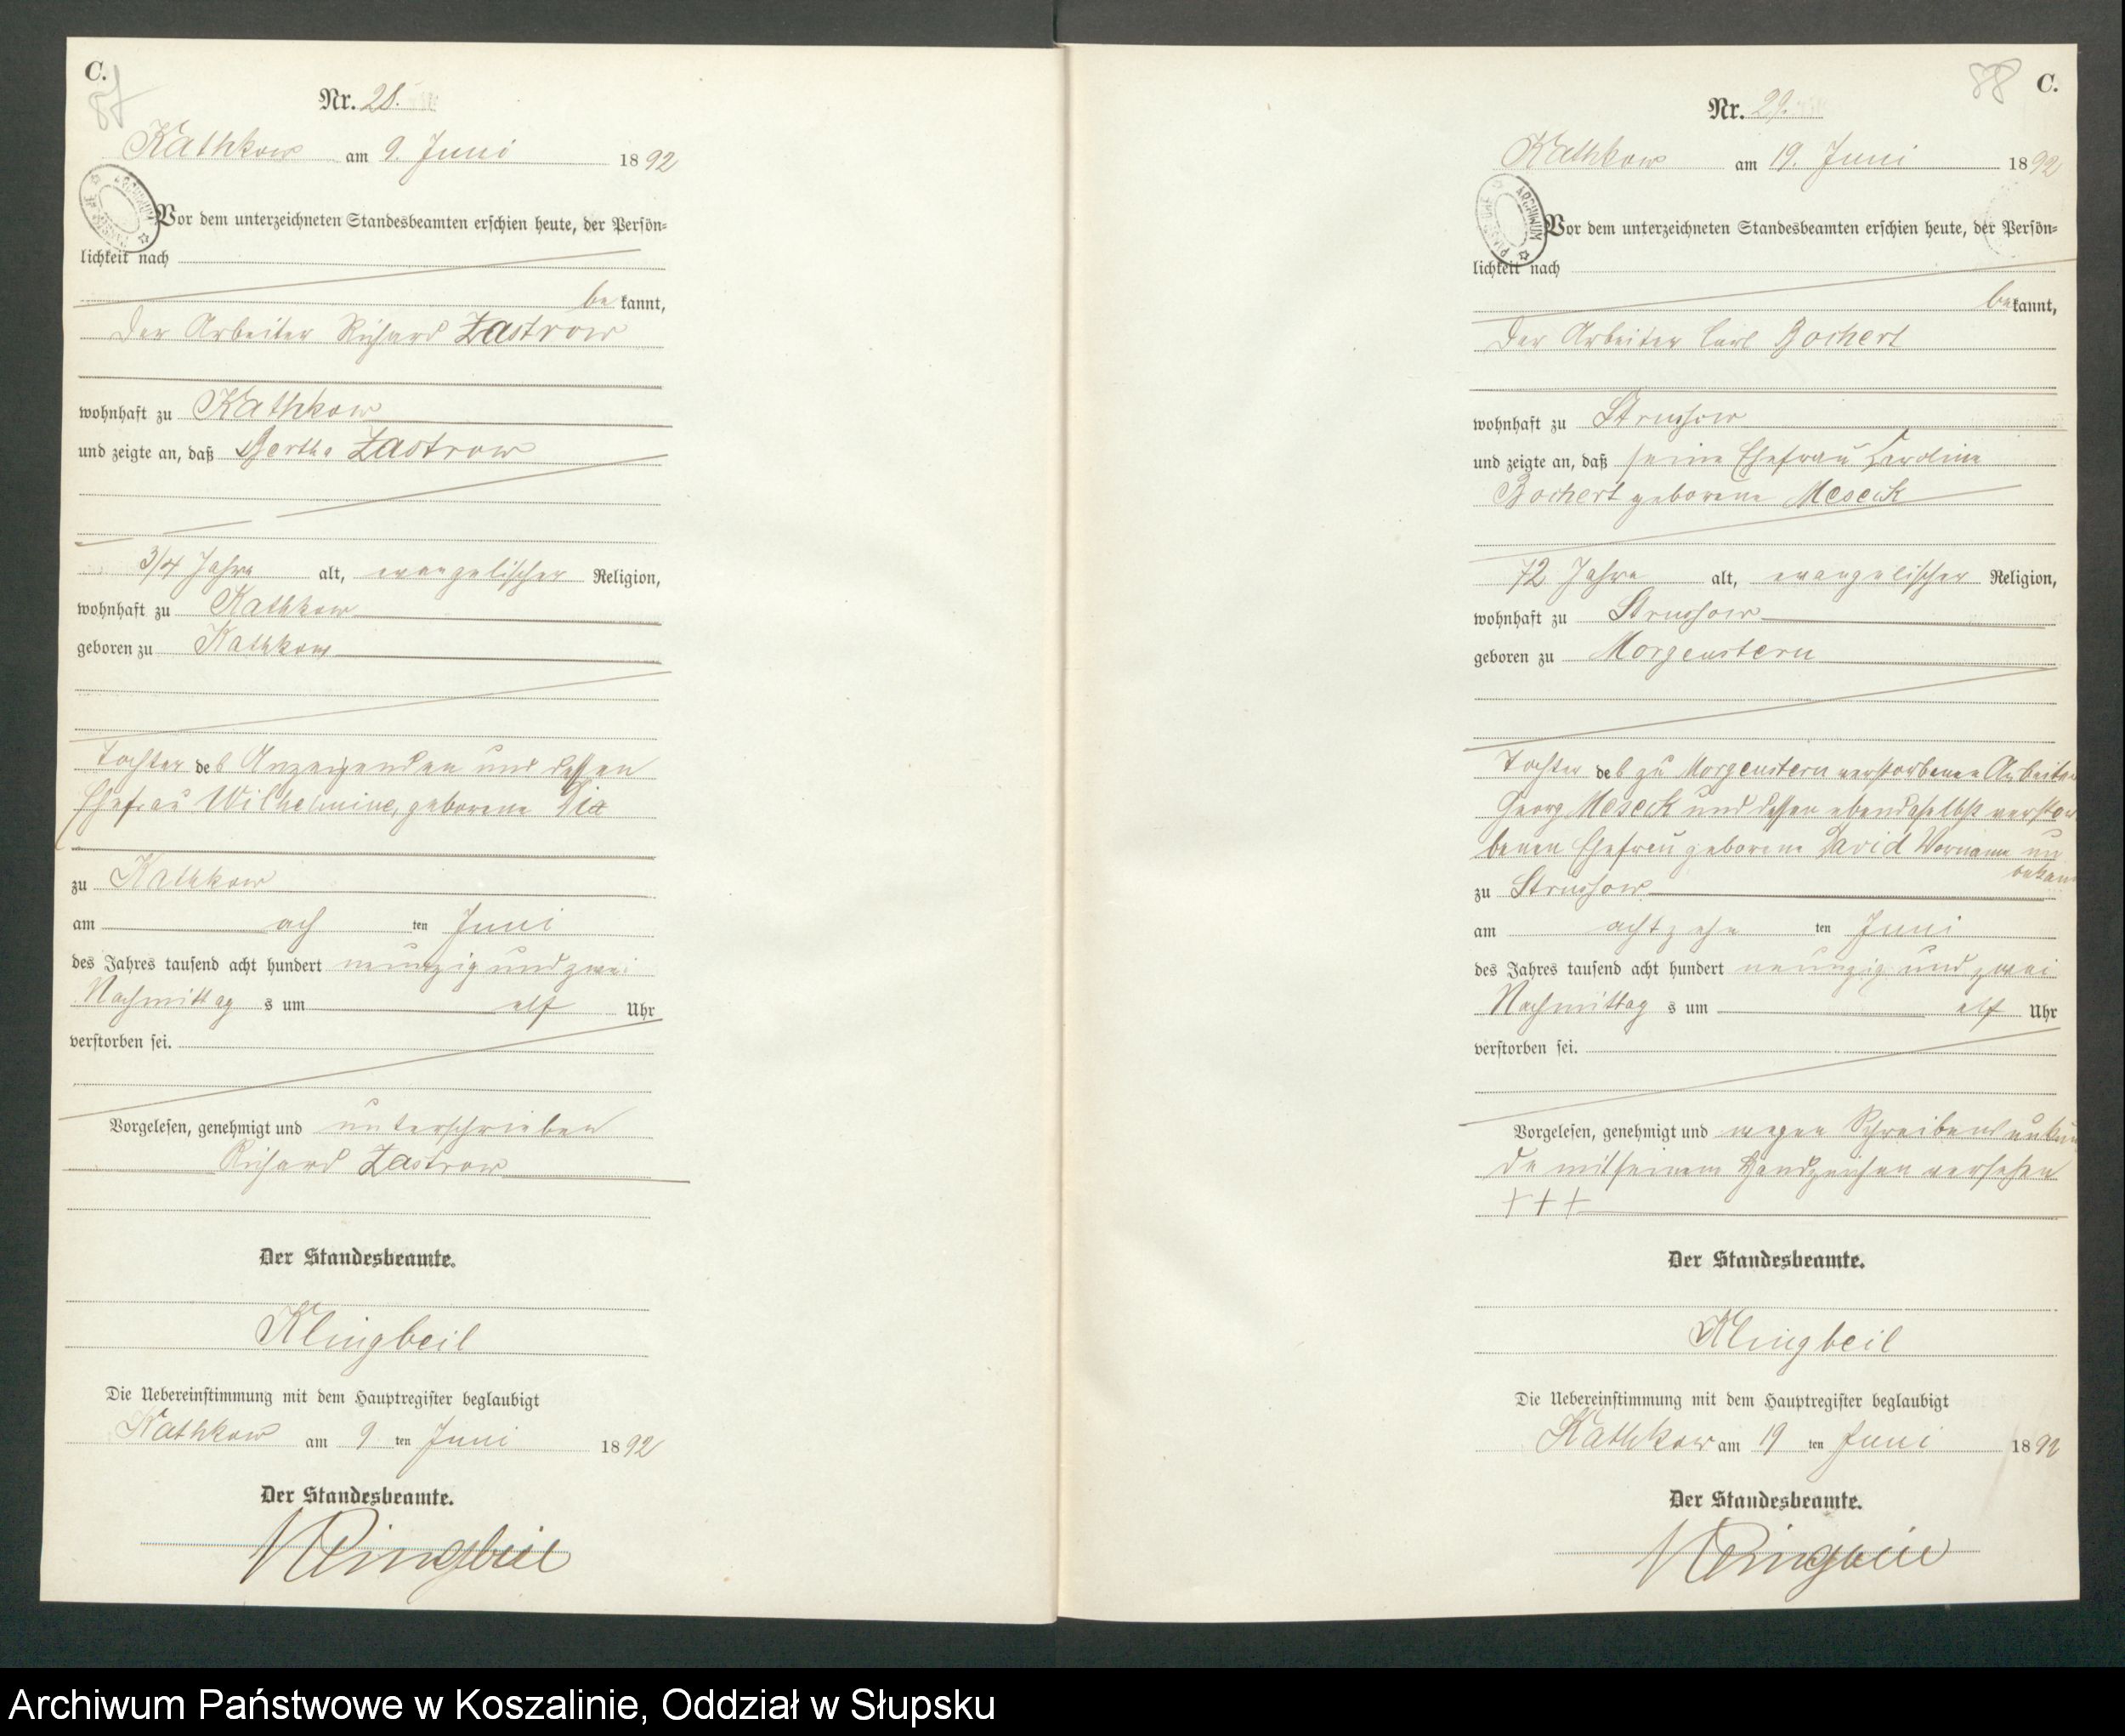 C.
87
Nr. 28.
Kathkow am 9. Juni 1892
ARCHIWUM PAŃSTWOWE
Vor dem unterzeichneten Standesbeamten erschien heute, der Persön-
lichkeit nach
be kannt,
der Arbeiter Richard Zastrow
wohnhaft zu Kathkow
und zeigte an, daß Bertha Zastrow
3/4 Jahre alt, evangelischer Religion,
wohnhaft zu Kathkow
geboren zu Kathkow
Tochter des Anzeigenden und dessen
Ehefrau Wilhelmine, geborene
zu Kathkow
am ach ten Juni
des Jahres tausend acht hundert neunzig und zwei
Nachmittag s um elf Uhr
verstorben sei.
Vorgelesen, genehmigt und unterschrieben
Richard Zastrow
Der Standesbeamte.
Klingbeil
Die Uebereinstimmung mit dem Hauptregister beglaubigt
Kathkow am 9 ten Juni 1892
Der Standesbeamte.
Klingbeil
88
C.
Nr. 29.
Kathkow am 19. Juni 1892
ARCHIWUM PAŃSTWOWE
Vor dem unterzeichneten Standesbeamten erschien heute, der Persön-
lichkeit nach
be kannt,
der Arbeiter Carl Bochert
wohnhaft zu Strussow
und zeigte an, daß seine Ehefrau Karoline
Bochert geborene Meseck
72 Jahre alt, evangelischer Religion,
wohnhaft zu Strussow
geboren zu Morgenstern
Tochter des zu Morgenstern verstorbenen Arbeiter
Georg Meseck und dessen ebendaselbst verstor
benen Ehefrau geborene David Vorname un
bekan
zu Strussow
am achtzehn ten Juni
des Jahres tausend acht hundert neunzig und zwei
Nachmittag s um elf Uhr
verstorben sei.
Vorgelesen, genehmigt und wegen Schreibensunkun
de mit seinem Handzeichen versehen
+ + +
Der Standesbeamte.
Klingbeil
Die Uebereinstimmung mit dem Hauptregister beglaubigt
Kathkow am 19 ten Juni 1892
Der Standesbeamte.
Klingbeil
Archiwum Państwowe w Koszalinie, Oddział w Słupsku